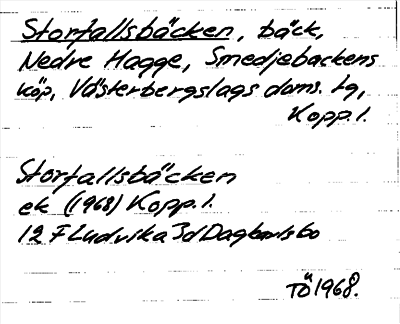 Storfallsbäcken, bäck,
Nedre Hagge, Smedjebackens
köp, Västerbergslags doms. tg,
Kopp. l.
Storfallsbäcken
ek (1968) Kopp. l.
12 F Ludvika 3d Dagbovlsbo
TÖ 1968.